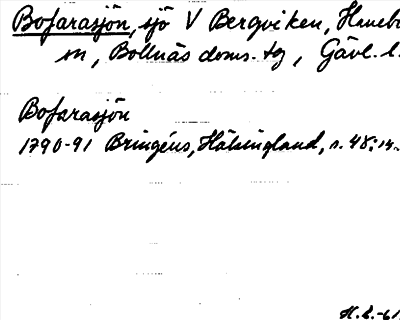 Bofarasjön, sjö V Bergviken, Haneb
sn, Bollnäs doms. tg, Gävl. l.
Bofarasjön
1790-91 Bringéus, Hälsingland, s. 48; n.
H.L.-61